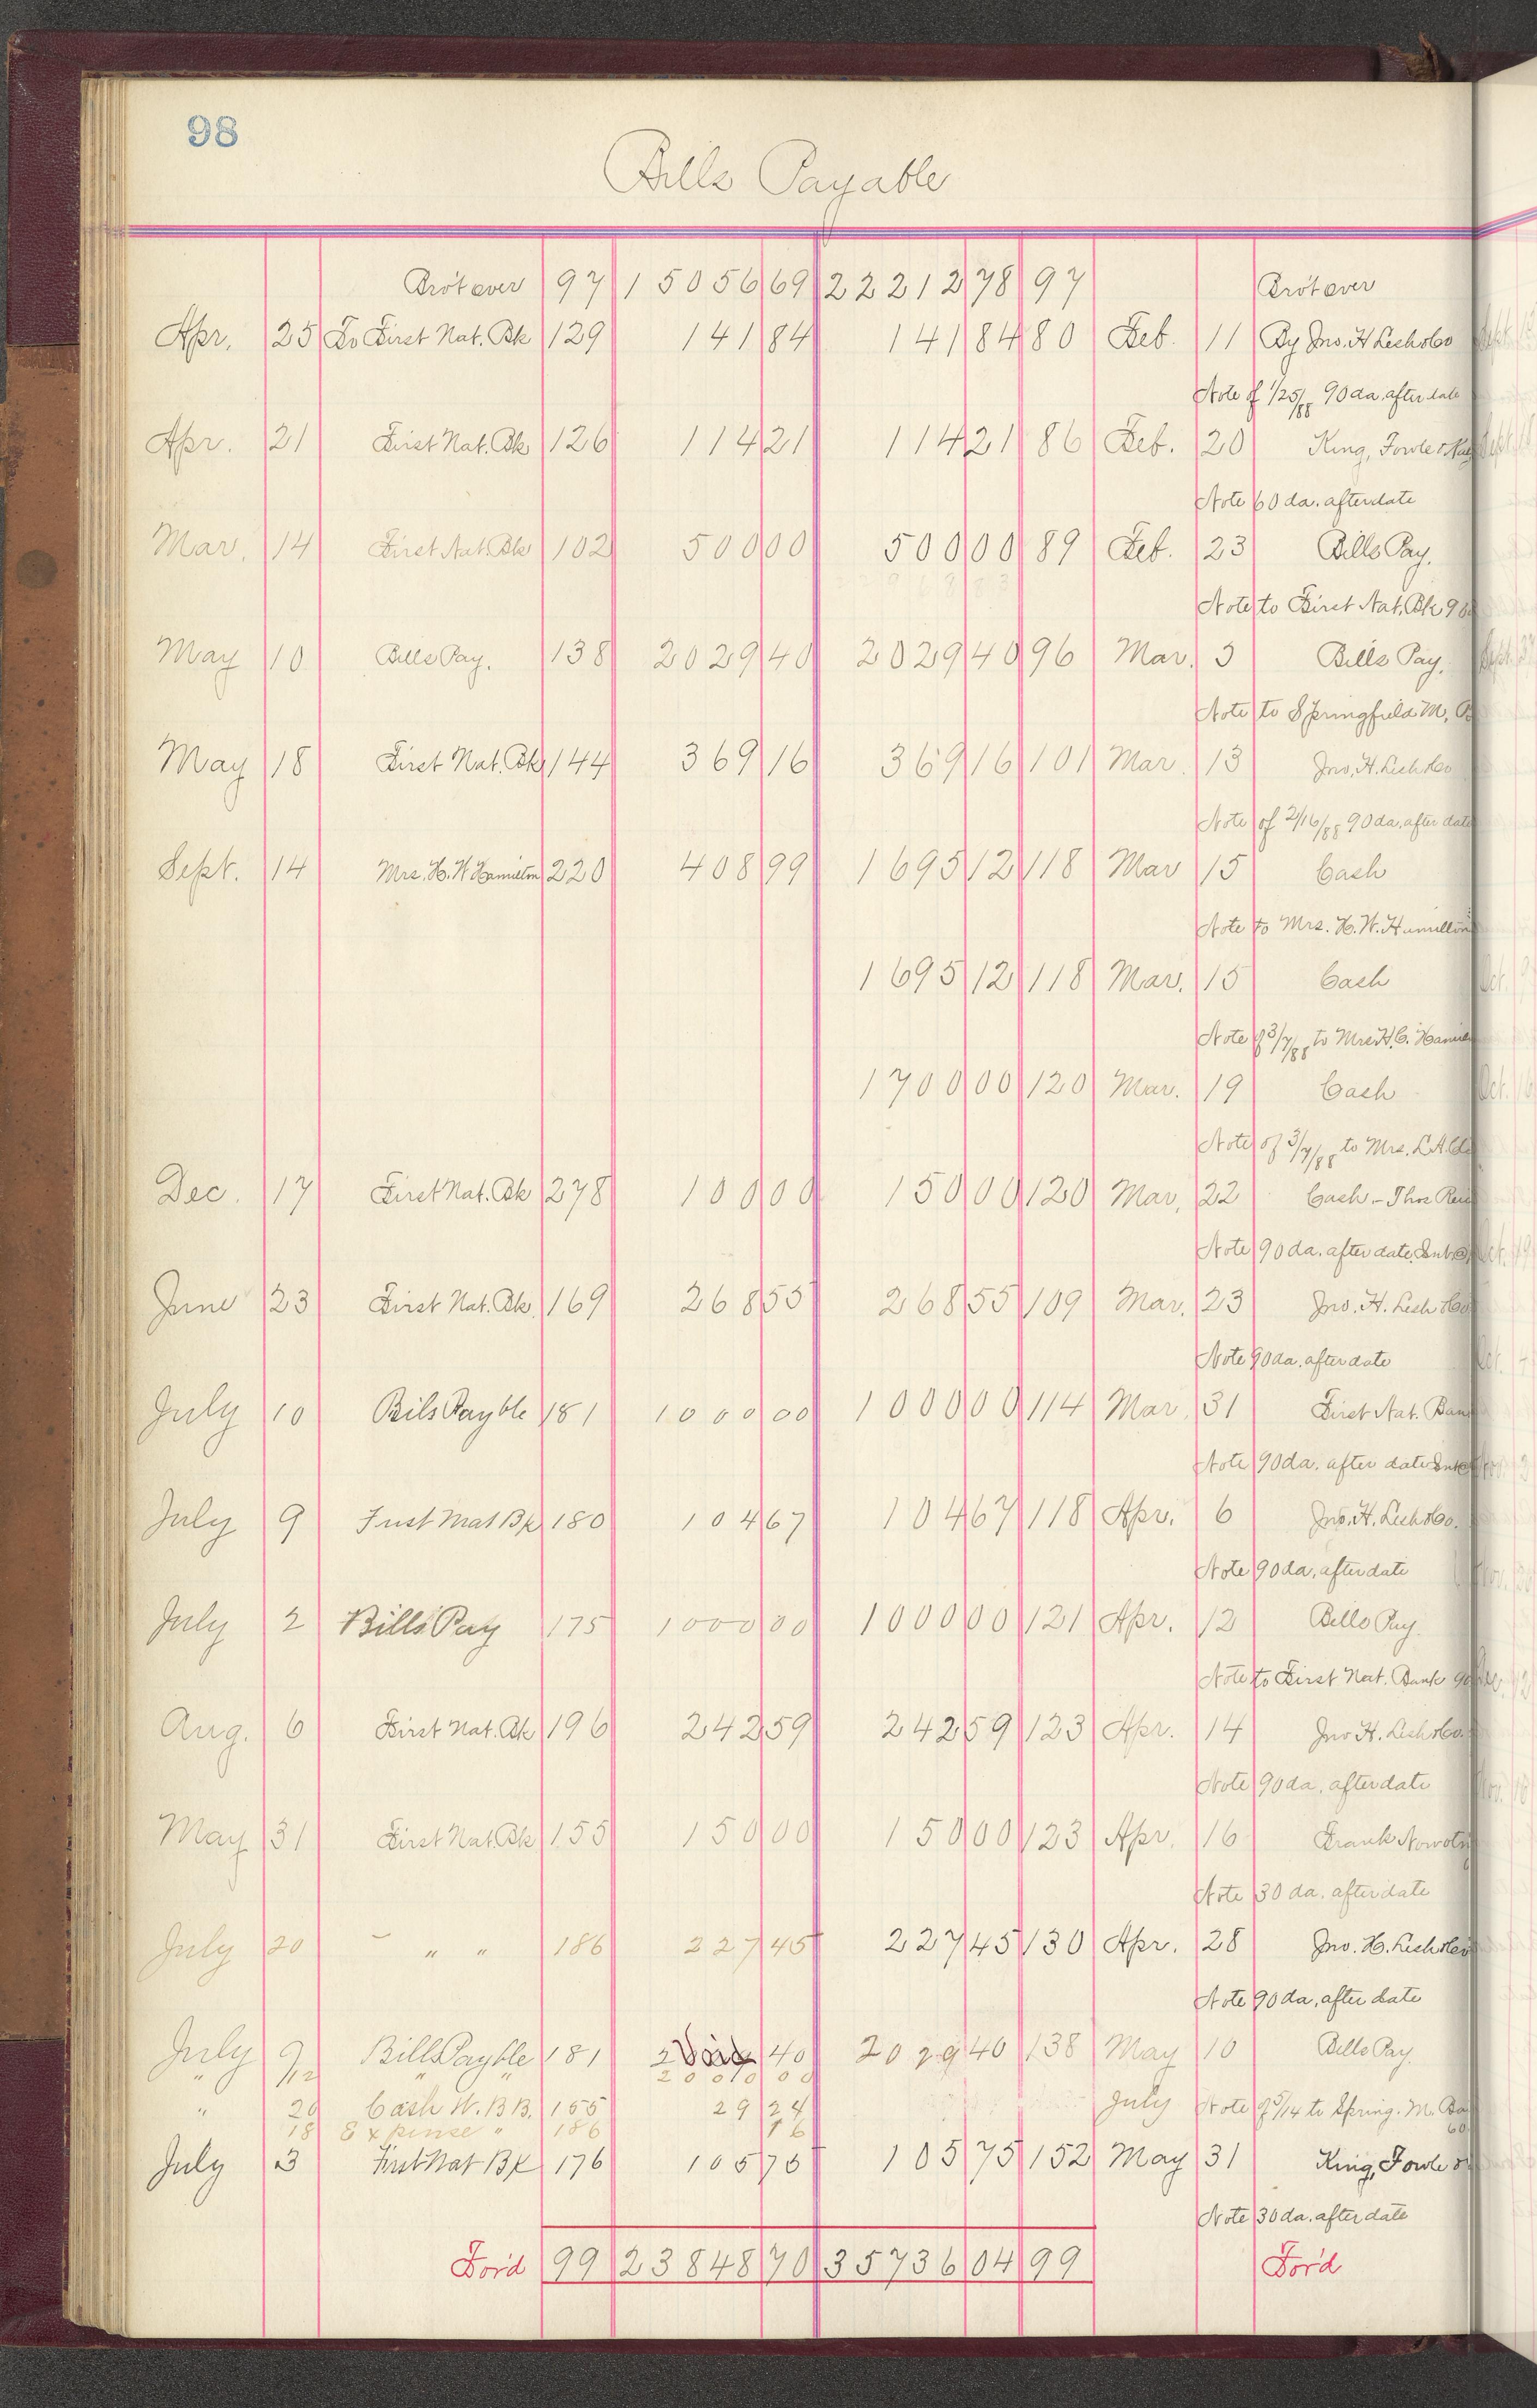 98
Bills Payable
Bro't over 97 15056 69 22212 78 97 Bro't over
Apr. 25 To First Nat. Bk 129 141 84 141 84 80 Feb. 11 By Jno. H Lesh & Co
Note of 1/25/88 90 da. after date
Apr. 21 First Nat. Bk 126 114 21 114 21 86 Feb. 20 King, Fowle &
Note 60 da. after date
Mar. 14 First Nat. Bk 102 500 00 500 00 89 Feb. 23 Bills Pay.
Note to First Nat. Bk 90
May 10 Bills Pay. 138 2029 40 2029 40 96 Mar. 3 Bills Pay.
Note to Springfield M.
May 18 First Nat. Bk 144 369 16 369 16 101 Mar. 13 Jno. H. Lesh & Co
Note of 2/16/88 90 da. after date
Sept. 14 Mrs. H. W Hamilton 220 408 99 1695 12 118 Mar 15 Cash
Note to Mrs. H. W. Hamilton
1695 12 118 Mar. 15 Cash
Note of 3/7/88 to Mrs H. C. Hamil
1700 00 120 Mar. 19 Cash
Note of 3/7/88 to Mrs. L. A.
Dec. 17 First Nat. Bk 278 100 00 150 00 120 Mar. 22 Cash - Thos
Note 90 da. after date Int @
June 23 First Nat. Bk. 169 268 55 268 55 109 Mar. 23 Jno. H. Lesh & Co
Note 90 da. after date
July 10 Bils Payble 181 1000 00 1000 00 114 Mar. 31 First Nat. Ban
Note 90 da. after date Int @
July 9 First Nat Bk 180 104 67 104 67 118 Apr. 6 Jno. H. Lesh & Co.
Note 90 da. after date
July 2 Bills Pay 175 1000 00 1000 00 121 Apr. 12 Bills Pay.
Note to First Nat. Bank 90
Aug. 6 First Nat. Bk 196 242 59 242 59 123 Apr. 14 Jno H. Lesh & Co.
Note 90 da. after date
May 31 First Nat. Bk 155 150 00 150 00 123 Apr. 16 Frank Nowotn
Note 30 da. after date
July 20 " " " 186 227 45 227 45 130 Apr. 28 Jno. H. Lesh & Co
Note 90 da. after date
July 9 Bills Payble 181 Void 40 2029 40 138 May 10 Bills Pay.
" 12 " " 2000 00
" 20 Cash W. B B. 155 29 24 July Note of 5/14 to Spring. M. Ba
18 Expense " 186 16 60
July 3 First Nat Bk 176 105 75 105 75 152 May 31 King, Fowle &
Note 30 da. after date
For'd 99 23848 70 35736 04 99 For'd